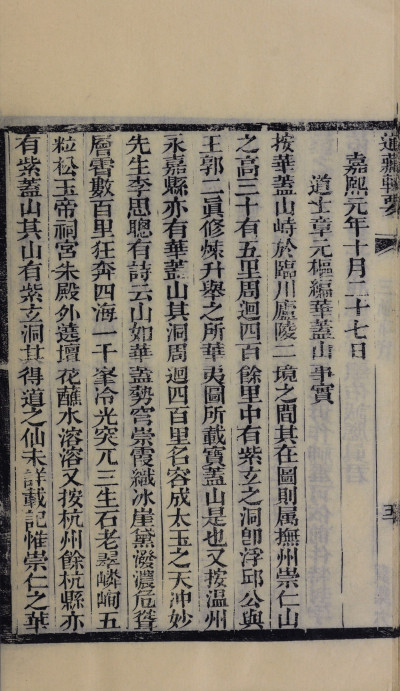 道藏輯要
嘉熙元年十月二十七日
道士章元樞編華蓋山事實
按華蓋山峙於臨川廬陵二境之間其在圖則属撫州崇仁山
之高三十有五里周迴四百餘里中有紫玄之洞卽浮邱公與
王郭二眞修煉升舉之所華夷圖所載寶蓋山是也又按温州
永嘉縣亦有華蓋山其洞周迴四百里名容成太玉之天冲妙
先生李思聰有詩云山如華蓋勢穹崇霞纖冰崖黛潑濃危聳
層霄數百里狂奔四海一千峯冷光突兀三生石老翠嶙峋五
粒松玉帝祠宮朱殿外遶壇花蘸水溶溶又按杭州餘杭縣亦
有紫蓋山其山有紫玄洞其得道之仙未詳載記惟崇仁之華
五